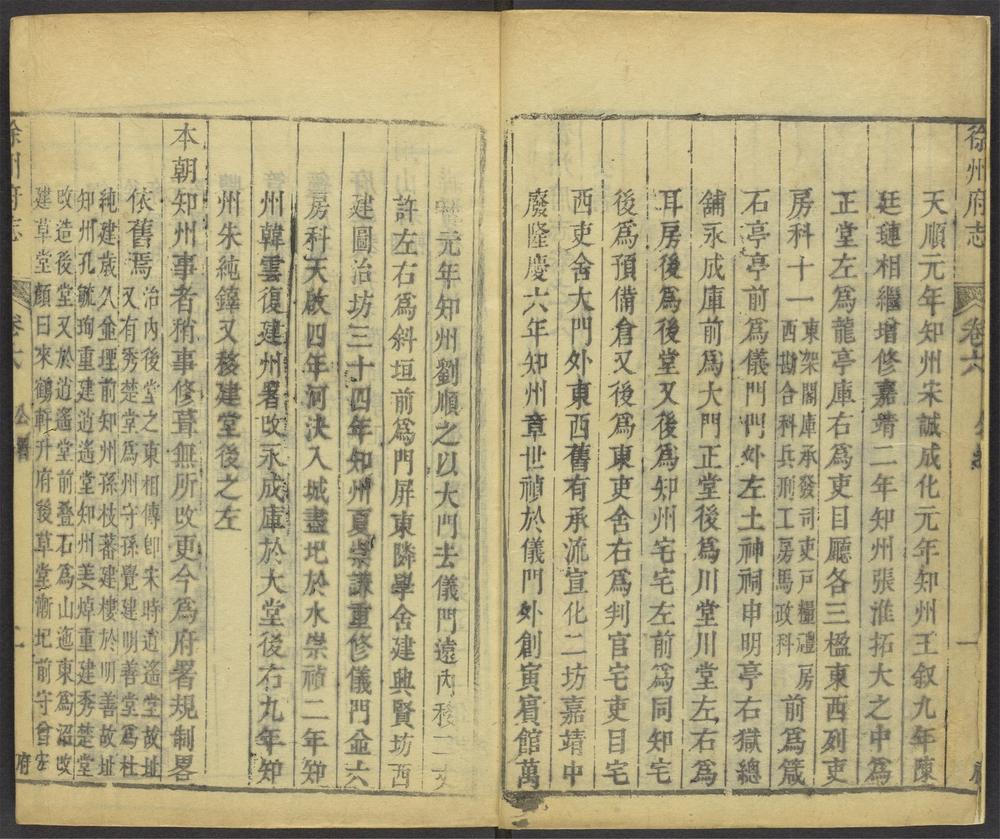 徐州府志
卷六
一
天順元年知州宋誠成化元年知州王叙九年陳
廷璉相繼增修嘉靖二年知州張淮拓大之中爲
正堂左爲龍亭庫右爲吏目廳各三楹東西列吏
房科十一東架閣庫承發司吏戶糧禮房西勘合科兵刑工房馬政科前爲箴
石亭亭前爲儀門門外左土神祠申明亭右獄總
舖永成庫前爲大門正堂後爲川堂川堂左右爲
耳房後爲後堂又後爲知州宅宅左前爲同知宅
後爲預備倉又後爲東吏舍右爲判官宅吏目宅
西吏舍大門外東西舊有承流宣化二坊嘉靖中
廢隆慶六年知州章世禎於儀門外創寅賓館萬
元年知州劉順之以大門去儀門遠內移二丈
許左右爲斜垣前爲門屏東隣學舍建興賢坊西
建圖治坊三十四年知州夏崇謙重修儀門並六
房科天啟四年河決入城盡圯於水崇禎二年知
州韓雲復建州署改永成庫於大堂後右九年知
州朱純鍏又移建堂後之左
本朝知州事者稍事修葺無所改更今爲府署規制畧
依舊焉治內後堂之東相傳卽宋時逍遙堂故址又有秀楚堂爲州守孫覺建明善堂爲杜
純建歲久並理前知州孫枝蕃建樓於明善故址
知州孔毓珣重建逍遙堂知州姜焯重建秀楚堂
改造後堂又於逍遙堂前疊石爲山迤東爲沼改
建草堂顏曰來鶴軒升府後草堂漸圯前守曾
徐州府志
卷六
公署
二
府